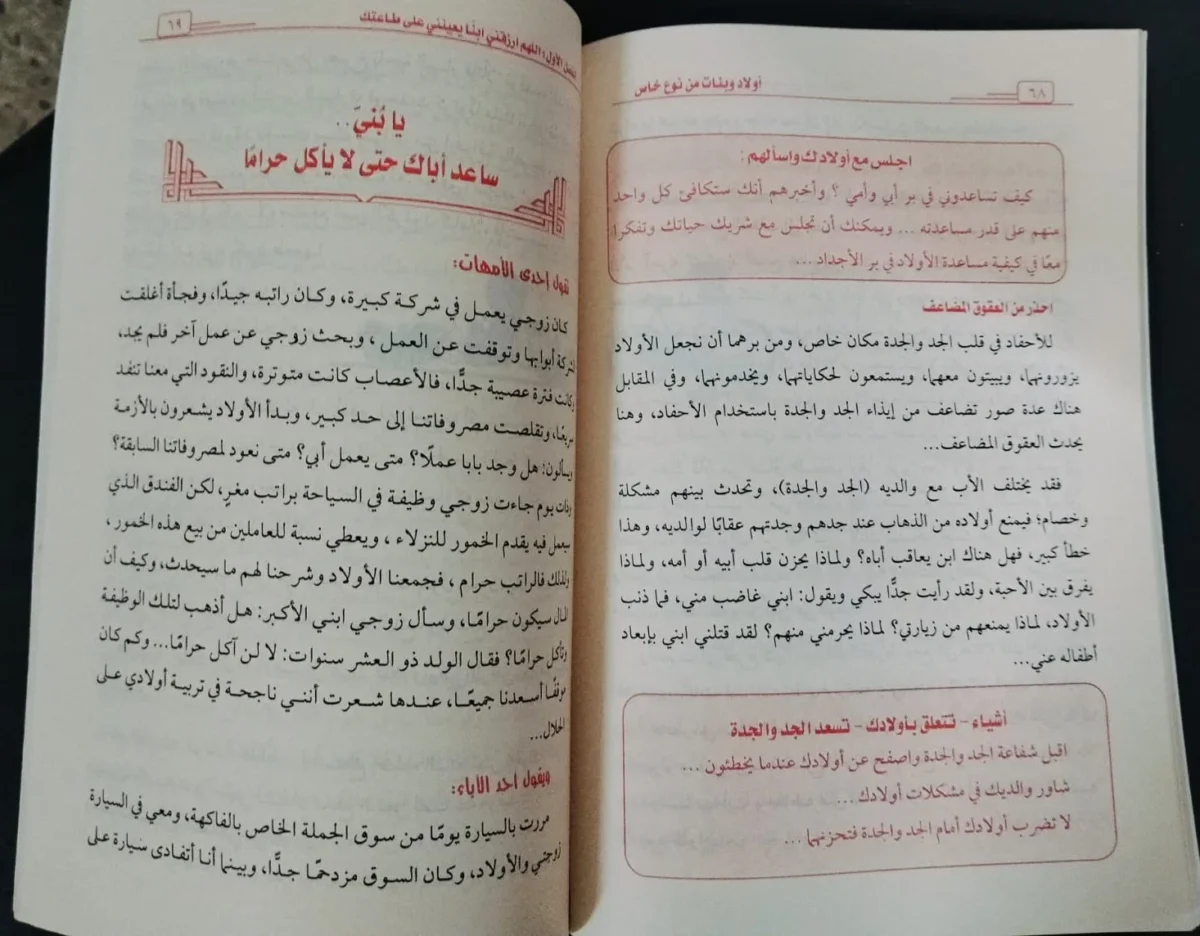 ٦٨
أولاد وبنات من نوع خاص
اجلس مع أولادك واسألهم :
كيف تساعدوني في بر أبي وأمي ؟ وأخبرهم أنك ستكافئ كل واحد
منهم على قدر مساعدته ... ويمكنك أن تجلس مع شريك حياتك وتفكرا
معًا في كيفية مساعدة الأولاد في بر الأجداد...
احذر من العقوق المضاعف
للأحفاد في قلب الجد والجدة مكان خاص، ومن برهما أن نجعل الأولاد
يزورونهما، ويبيتون معهما، ويستمعون لحكاياتهما، ويخدمونهما، وفي المقابل
هناك عدة صور تضاعف من إيذاء الجد والجدة باستخدام الأحفاد، وهنا
يحدث العقوق المضاعف...
فقد يختلف الأب مع والديه (الجد والجدة)، وتحدث بينهم مشكلة
وخصام؛ فيمنع أولاده من الذهاب عند جدهم وجدتهم عقابًا لوالديه، وهذا
خطأ كبير، فهل هناك ابن يعاقب أباه؟ ولماذا يحزن قلب أبيه أو أمه، ولماذا
يفرق بين الأحبة، ولقد رأيت جدًّا يبكي ويقول: ابني غاضب مني، فما ذنب
الأولاد، لماذا يمنعهم من زيارتي؟ لماذا يحرمني منهم؟ لقد قتلني ابني بإبعاد
أطفاله عني...
أشياء - تتعلق بأولادك - تسعد الجد والجدة
اقبل شفاعة الجد والجدة واصفح عن أولادك عندما يخطئون ...
شاور والديك في مشكلات أولادك...
لا تضرب أولادك أمام الجد والجدة فتحزنهما ...
الأول : اللهم ارزقني ابنًا يعينني على طاعتك
٦٩
يا بُنيّ..
ساعد أباك حتى لا يأكل حرامًا
تقول إحدى الأمهات:
كان زوجي يعمل في شركة كبيرة، وكان راتبه جيدًا، وفجأة أغلقت
الشركة أبوابها وتوقفت عن العمل ، وبحث زوجي عن عمل آخر فلم يجد،
وكانت فترة عصيبة جدًّا، فالأعصاب كانت متوترة، والنقود التي معنا تنفد
سريعًا، وتقلصت مصروفاتنا إلى حد كبير، وبدأ الأولاد يشعرون بالأزمة
ويسألون: هل وجد بابا عملًا؟ متى يعمل أبي؟ متى نعود لمصروفاتنا السابقة؟
وذات يوم جاءت زوجي وظيفة في السياحة براتب مغرٍ، لكن الفندق الذي
سيعمل فيه يقدم الخمور للنزلاء ، ويعطي نسبة للعاملين من بيع هذه الخمور ،
ولذلك فالراتب حرام ، فجمعنا الأولاد وشرحنا لهم ما سيحدث، وكيف أن
المال سيكون حرامًا، وسأل زوجي ابني الأكبر: هل أذهب لتلك الوظيفة
وتأكل حرامًا؟ فقال الولد ذو العشر سنوات: لا لن آكل حرامًا... وكم كان
موقفًا أسعدنا جميعًا، عندها شعرت أنني ناجحة في تربية أولادي على
الحلال...
ويقول أحد الآباء:
مررت بالسيارة يومًا من سوق الجملة الخاص بالفاكهة، ومعي في السيارة
زوجتي والأولاد، وكان السوق مزدحمًا جدًّا، وبينما أنا أتفادى سيارة على